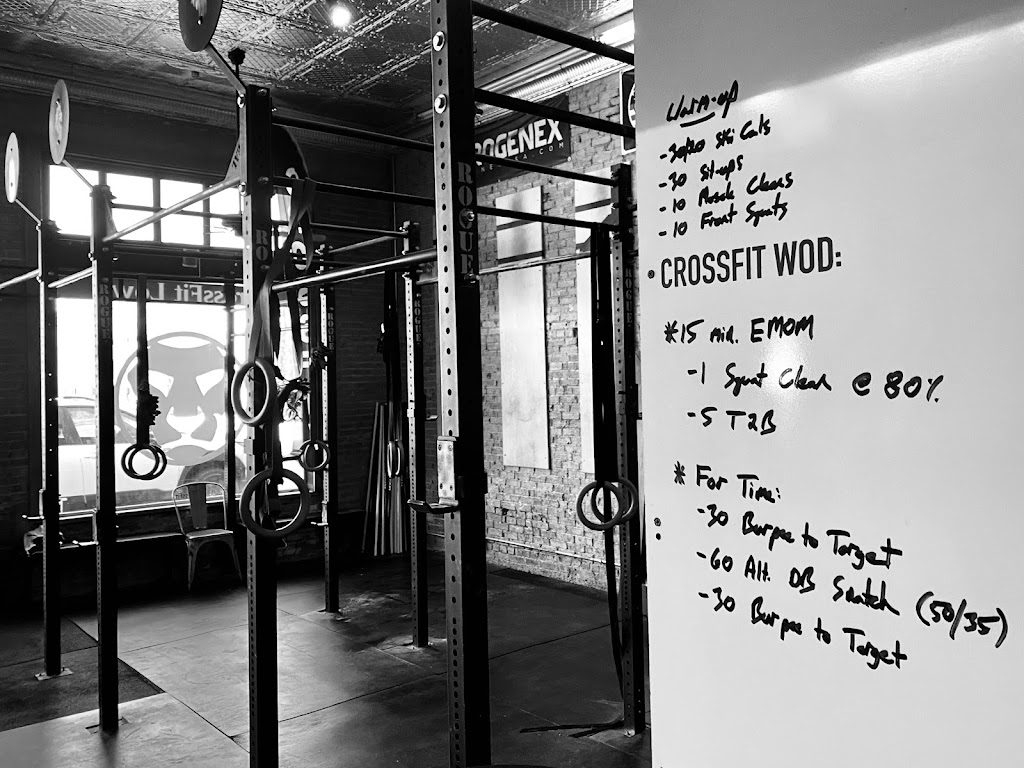 Warm-up
- 30/20 Ski Cals
- 30 Sit-ups
- 10 Muscle Cleans
- 10 Front Squats
• CROSSFIT WOD:
*15 min. EMOM
- 1 Squat Clean @ 80%
- 5 T2B
* For Time:
- 30 Burpee to Target
- 60 Alt. DB Snatch (50/35)
- 30 Burpee to Target
ROGENEX
ROGUE
ROGUE
RO
ROGUE
CrossFit